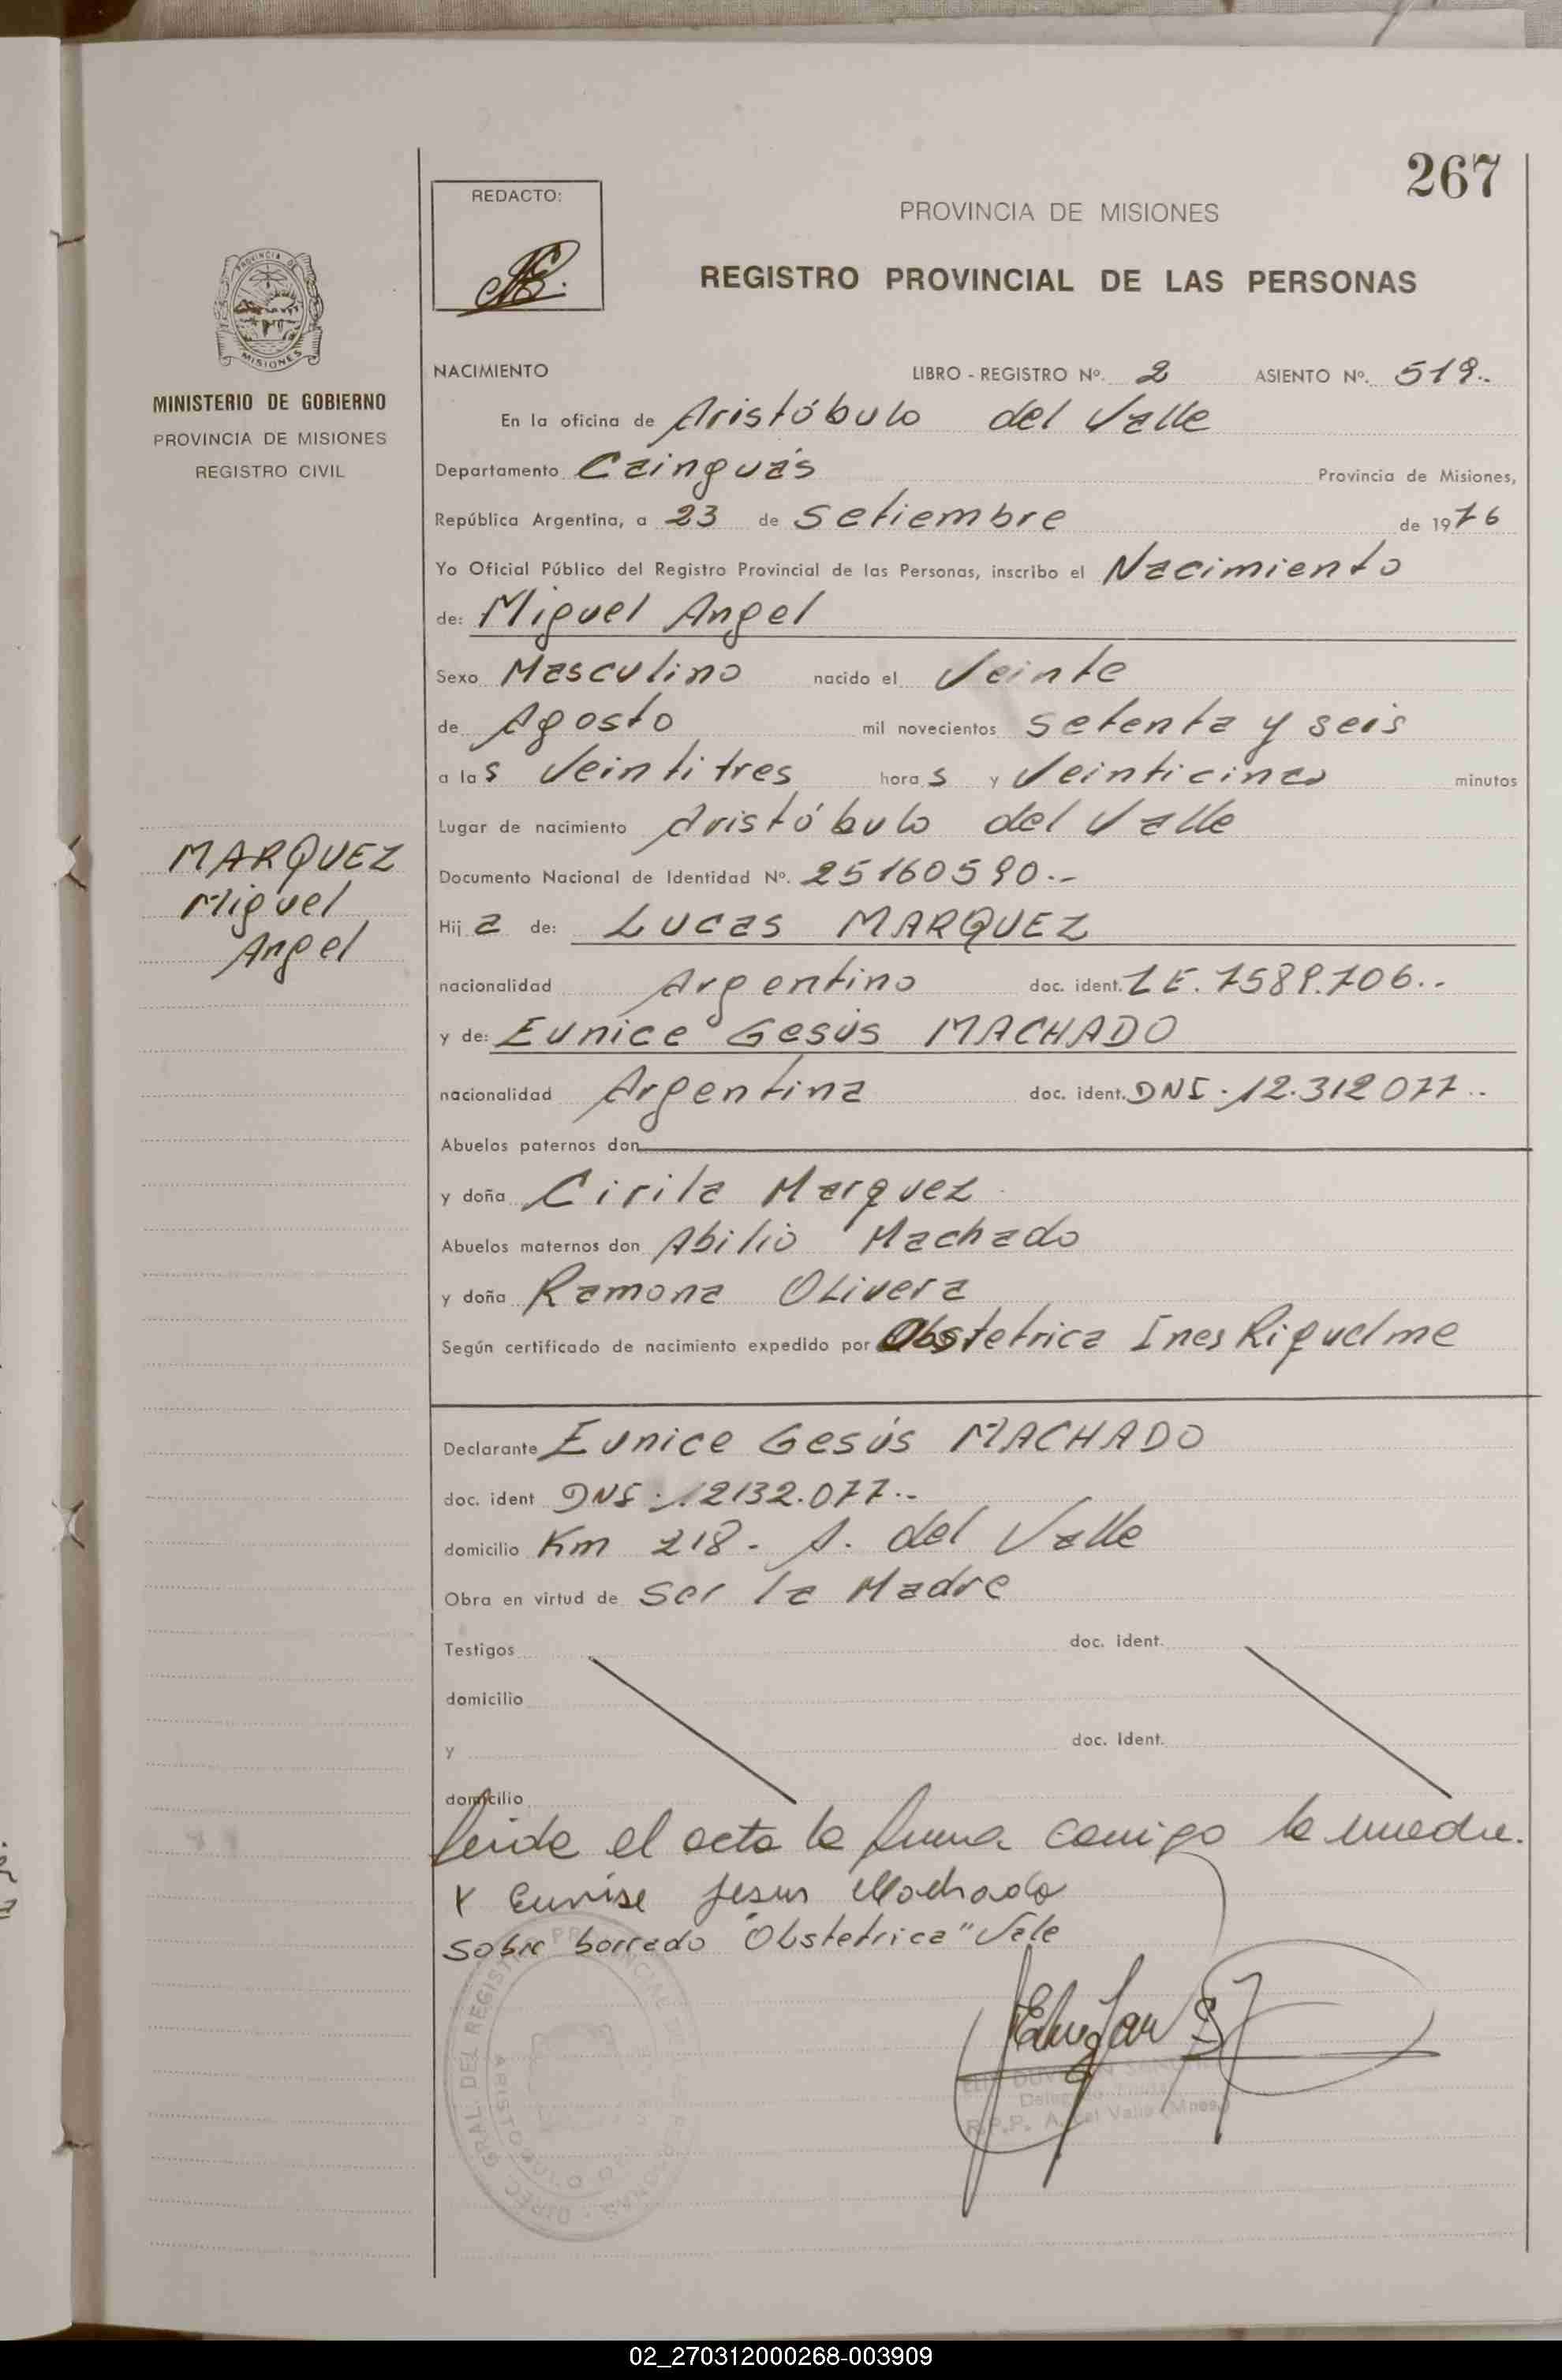 267
REDACTO:
PROVINCIA DE MISIONES
REGISTRO PROVINCIAL DE LAS PERSONAS
PROVINCIA DE
MISIONES
MINISTERIO DE GOBIERNO
PROVINCIA DE MISIONES
REGISTRO CIVIL
NACIMIENTO LIBRO - REGISTRO Nº. 2 ASIENTO Nº. 519..
En la oficina de Aristóbulo del Valle
Departamento Cainguás Provincia de Misiones,
República Argentina, a 23 de Setiembre de 1976
Yo Oficial Público del Registro Provincial de las Personas, inscribo el Nacimiento
de: Miguel Angel
Sexo Masculino nacido el Veinte
de Agosto mil novecientos setenta y seis
a las Veintitres horas y Veinticinco minutos
Lugar de nacimiento Aristóbulo del Valle
MARQUEZ
Miguel
Angel
Documento Nacional de Identidad Nº. 25160590.-
Hija de: Lucas MARQUEZ
nacionalidad Argentino doc. ident. LE. 7589.706..
y de: Eunice Gesús MACHADO
nacionalidad Argentina doc. ident. DNI. 12.312077..
Abuelos paternos don
y doña Cirila Marquez
Abuelos maternos don Abilio Machado
y doña Ramona Olivera
Según certificado de nacimiento expedido por Obstetrica Ines Riquelme
Declarante Eunice Gesús MACHADO
doc. ident DNI. 12132.077.-
domicilio Km 218 - A. del Valle
Obra en virtud de Ser la Madre
Testigos doc. ident.
domicilio
y doc. ident.
domicilio
Leida el acta la firma conmigo la madre.
X Eunise Jesus Machado
Sobre borrado "Obstetrica" Vale
R.P.P. A. del Valle (Mnes.)
02_270312000268-003909